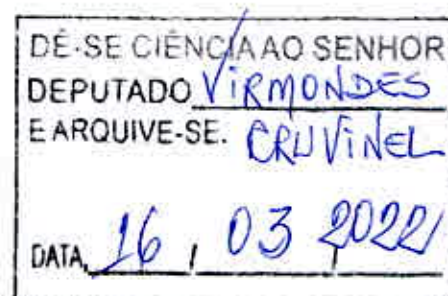 DÊ-SE CIÊNCIA AO SENHOR
DEPUTADO VIRMONDES
E ARQUIVE-SE. CRUVINEL
DATA, 16 / 03 2022/